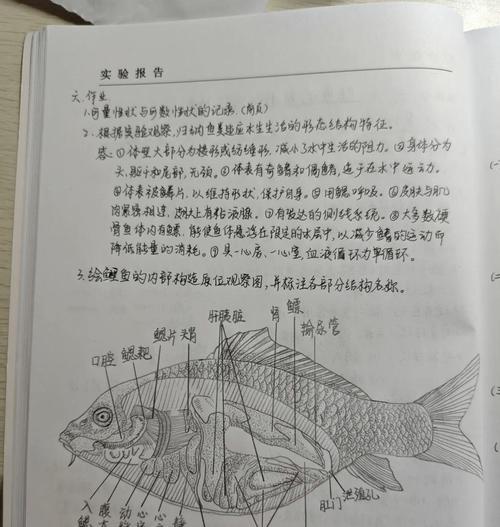 实验报告
六.作业
1.可量性状与可数性状的记录.(背页)
2.根据实验观察,归纳鱼类适应水生生活的形态结构特征。
答:①体型大部分为梭形或纺锤形,减小了水中生活的阻力。②身体分为
头、躯干和尾部,无颈。③体表有奇鳍和偶鳍,适于在水中运动。
④体表被鳞片,以维持形状,保护自身。⑤用鳃呼吸。⑥皮肤与肌
肉紧密相连,皮肤上有粘液腺。⑦有发达的侧线系统。⑧大多数硬
骨鱼体内有鳔,能使鱼体悬浮在限定的水层中,以减少鳍的运动而
降低能量的消耗。⑨具一心房、一心室,血液循环为单循环。
3.绘鲤鱼的内部构造原位观察图,并标注各部分结构名称。
肝胰脏 肾 鳔
输尿管
鳃片 头肾
口腔 鳃耙
肛门 泄殖孔
入 腹 动 心 心
鳃